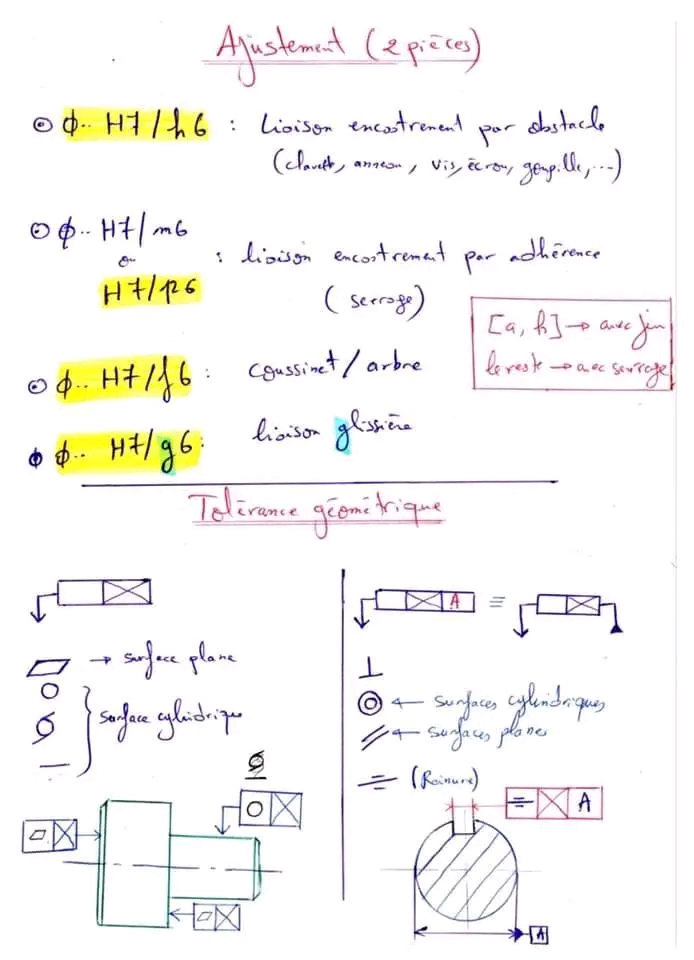 Ajustement (2 pièces)
⊙ ϕ.. H7/h6 : liaison encastrement par obstacle
(clavette, anneau, vis, écrou, goupille, ...)
⊙ ϕ.. H7/m6
ou
H7/p6
: liaison encastrement par adhérence
(serrage)
[a, h] → avec jeu
le reste → avec serrage
⊙ ϕ.. H7/f6 : coussinet / arbre
ϕ.. H7/g6 : liaison glissière
Tolérance géométrique
→ surface plane
surface cylindrique
A
≡
⊥
◎ ← surfaces cylindriques
// ← surfaces planes
(Rainure)
A
A